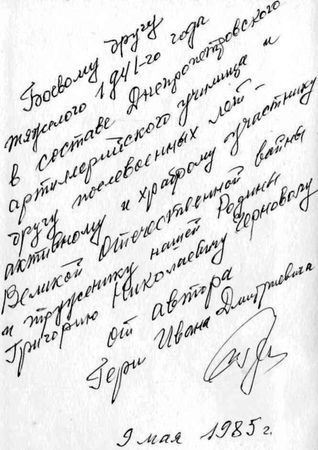 Боевому другу
тяжелого 1941-го года
в составе Днепропетровского
артиллерийского училища и
другу послевоенных лет -
активному и храброму участнику
Великой Отечественной войны
и труженику нашей Родины
Григорию Николаевичу Черноволу
от автора
Гери Ивана Дмитриевича
9 мая 1985 г.